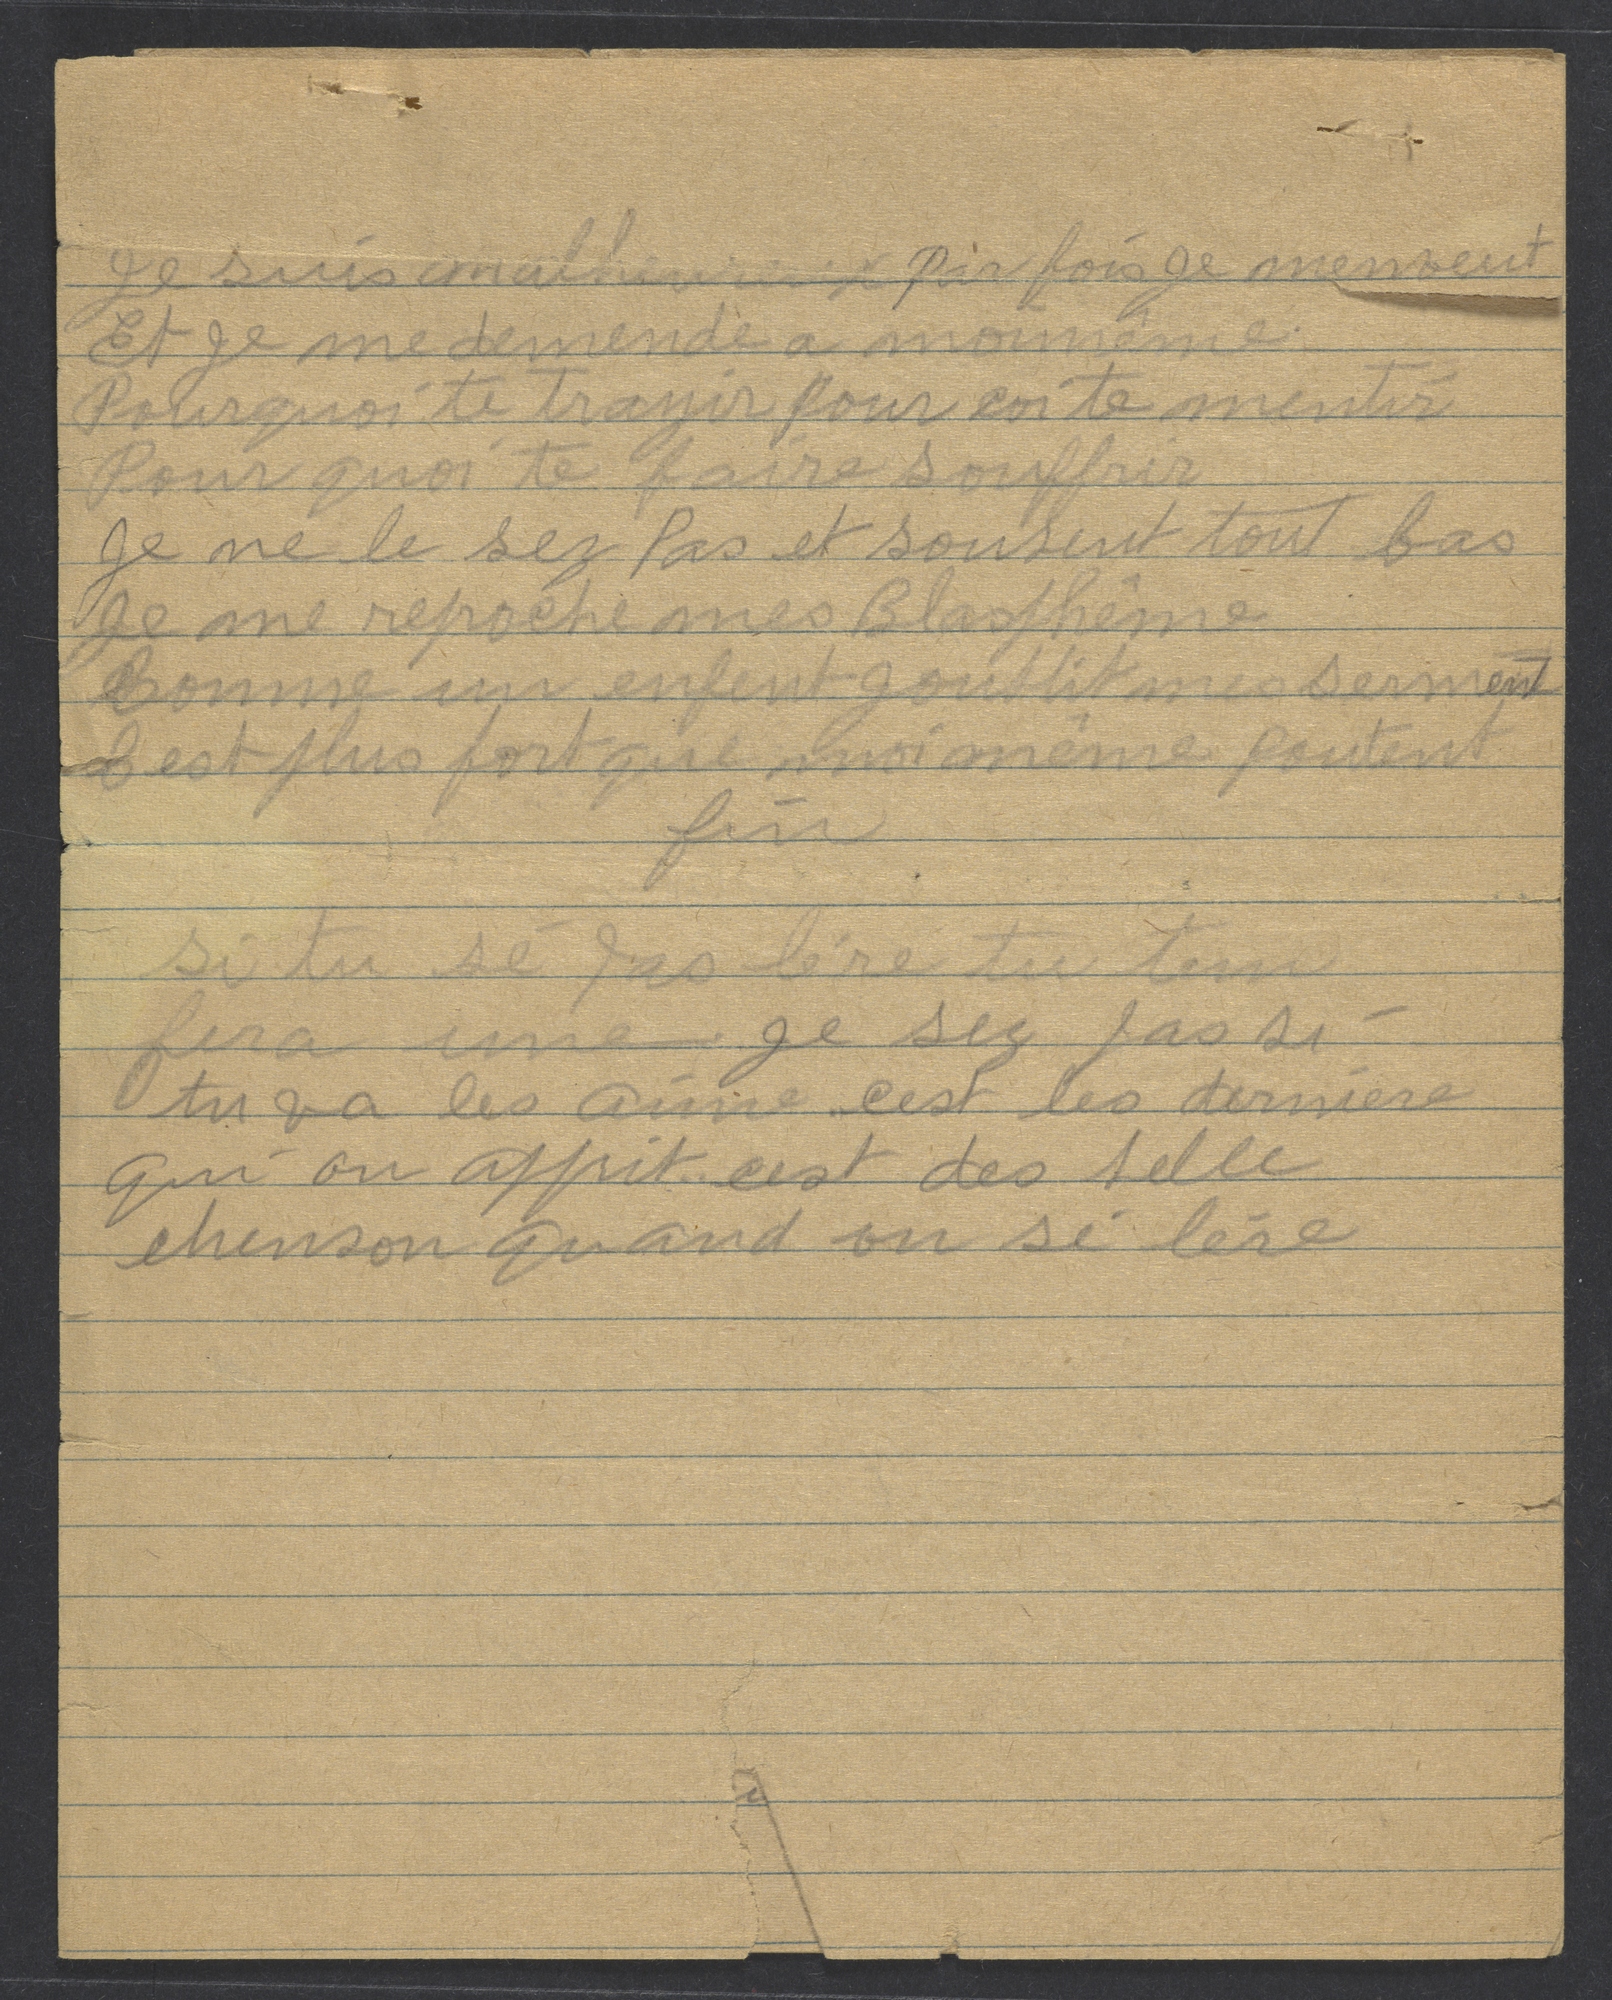 Je suis malheureux Par fois je menveut
Et je me demende a moimême
Pourquoi te trayir pour coi te mentir
Pour quoi te faire souffrir
Je ne le sez Pas et souvent tout bas
Je me repoche mes Blasphême
Comme un enfent joublit mes serment
C'est plus fort que moi même poutent
fin
si tu sé pas lére tu ten
fera une je sez pas si
tu va les aime cest les derniere
qui on apprit cest des belle
chenson quand on sé lére